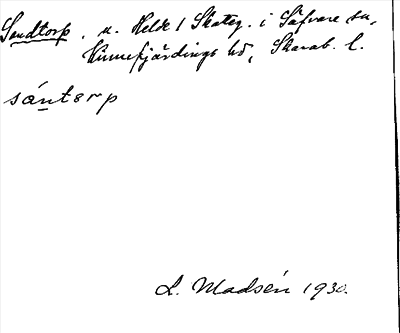 Sandtorp, u. Helde 1 Skattg. i Säfvare sn,
Kinnefjärdings hd, Skarab. l.
sántorp
L. Madsén 1930.